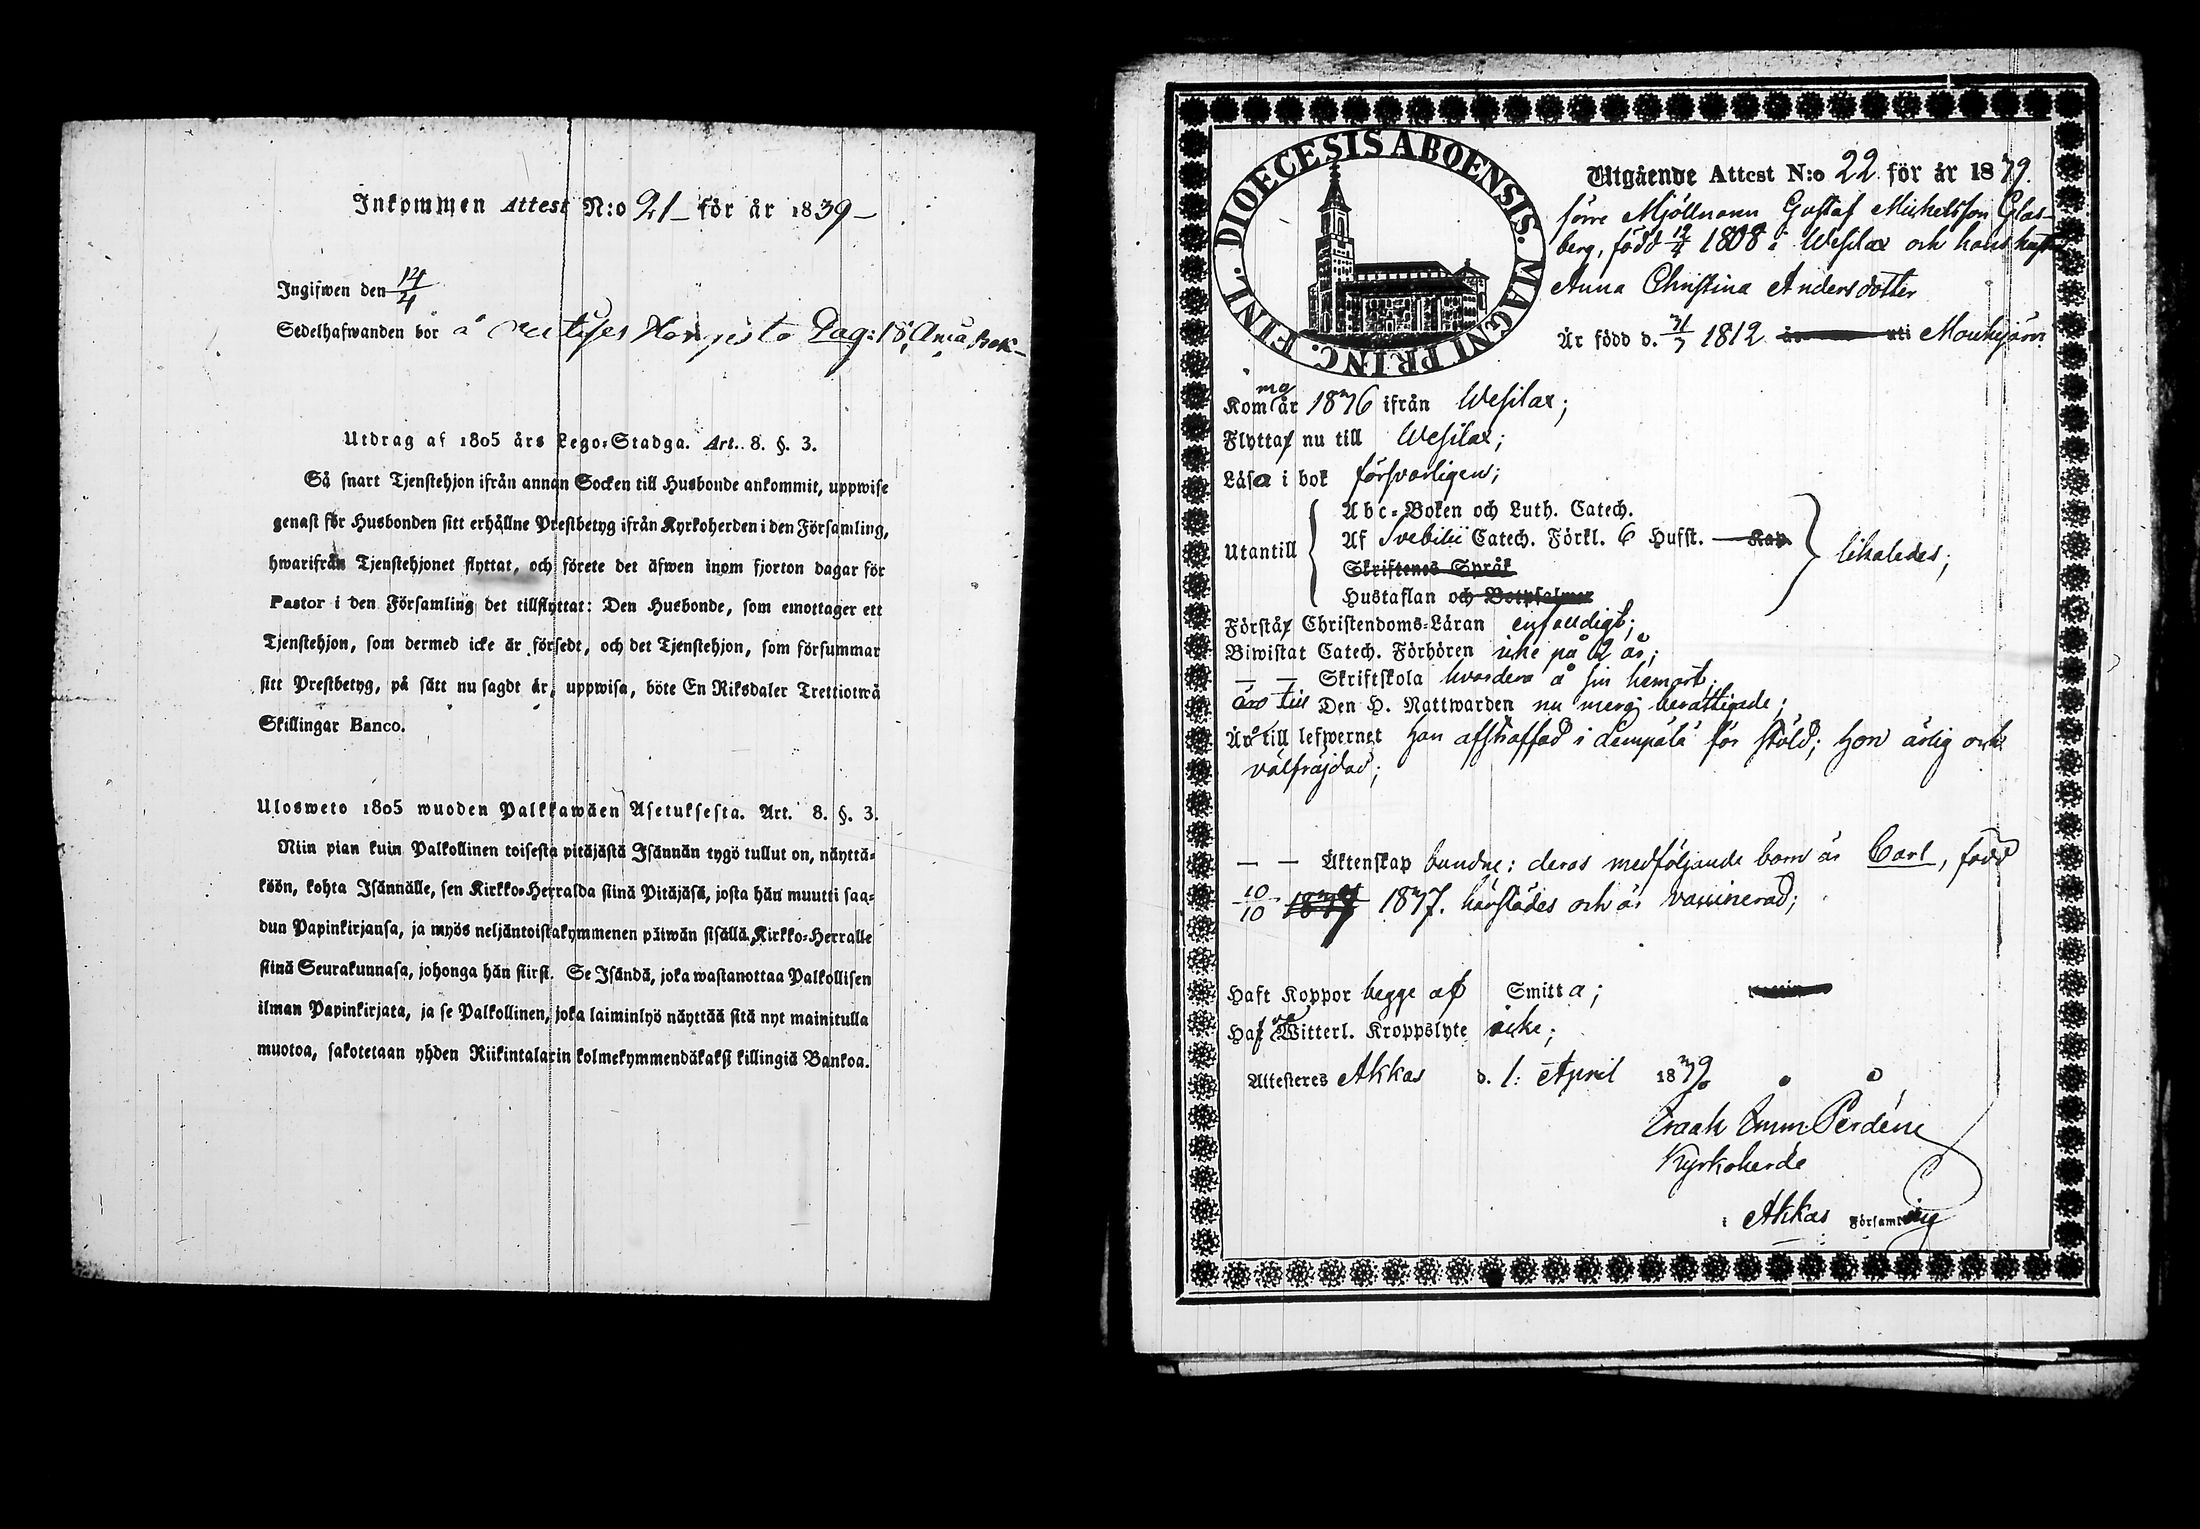 Inkommen Attest N:o 21 för år 1839
Ingifwen den 14/4
Sedelhafwanden bor å
Utdrag af 1805 års Lego-Stadga. Art. 8. §. 3.
Så snart Tjenstehjon ifrån annan Socken till Husbonde ankommit, uppwise
genast för Husbonden sitt erhållne Prestbetyg ifrån Kyrkoherden i den Församling,
hwarifrån Tjenstehjonet flyttat, och förete det äfwen inom fjorton dagar för
Pastor i den Församling det tillflyttat: Den Husbonde, som emottager ett
Tjenstehjon, som dermed icke är försedt, och det Tjenstehjon, som försummar
sitt Prestbetyg, på sätt nu sagdt är, uppwisa, böte En Riksdaler Trettiotwå
Skillingar Banco.
Ulosweto 1805 wuoden Palkkawäen Asetuksesta. Art. 8. §. 3.
Niin pian kuin Palkollinen toisesta pitäjästä Isännän tygö tullut on, näyttä-
köön, kohta Isännälle, sen Kirkko-Herralda siinä Pitäjäsä, josta hän muutti saa-
dun Papinkirjansa, ja myös neljäntoistakymmenen päiwän sisällä, Kirkko-Herralle
siinä Seurakunnasa, johonga hän siirsi. Se Isändä, joka wastanottaa Palkollisen
ilman Papinkirjata, ja se Palkollinen, joka laiminlyö näyttää sitä nyt mainitulla
muotoa, sakotetaan yhden Riikintalarin kolmekymmendäkaksi killingiä Bankoa.
DIOECESIS ABOENSIS. MAGNI PRINC. FINL.
Utgående Attest N:o 22 för år 1839.
förre Mjöllnaren Gustaf Michelsson Glas-
berg, född 12/4 1808 i Wesilax och hans hustru
Anna Christina Andersdotter
Är född d. 31/7 1812 uti Mouhijärvi
Komma år 1836 ifrån Wesilax;
Flytta nu till Wesilax;
Läsa i bok försvarligen;
Utantill
Abc-Boken och Luth. Catech.
Af Svebilii Catech. Förkl. 6 Hufst. Kap.
Skriftenes Språk
Hustaflan och Botpsalmer
likaledes;
Förstå Christendoms-Läran enfaldigt;
Biwistat Catech. Förhören icke på 2 år;
— — Skriftskola hvardera å sin hemort;
äro till Den H. Nattwarden nu mera berättigade;
Äro till lefwernet han afstraffad i Lempälä för stöld; hon ärlig och
välfräjdad;
— — Äktenskap bundne; deras medföljande barn är Carl, född
10/10 1837. härstädes och är vaccinerad;
Haft Koppor begge af Smitta;
Haf Witterl. Kroppslyte icke;
Attesteres Akkas d. 1: April 1839
Isaak Emm Perdén
Kyrkoherde
i Akkas Församling